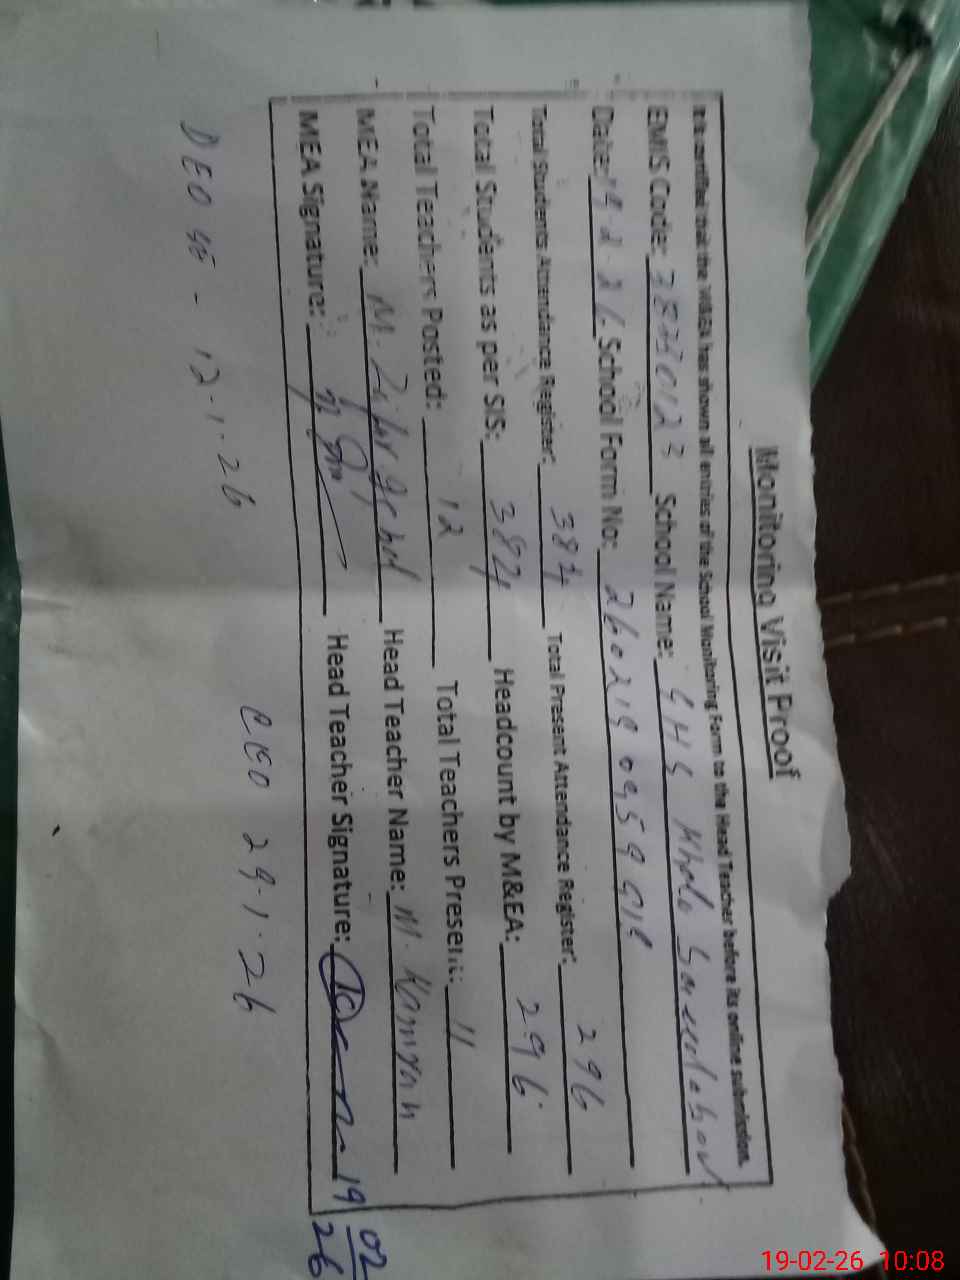 Monitoring Visit Proof
It is certified that the MEA has shown all entries of the School Monitoring Form to the Head Teacher before its online submission.
EMIS Code: School Name: GHS
Date: 19-2-26 School Form No:
Total Students Attendance Register: 384 Total Present Attendance Register: 296
Total Students as per SIS: 384 Headcount by M&EA: 296
Total Teachers Posted: 12 Total Teachers Present: 11
MEA Name: M. Head Teacher Name: M. Kamran
MEA Signature: Head Teacher Signature: 19/02/26
DEO SE - 12-1-26 CEO 29.1.26
19-02-26 10:08